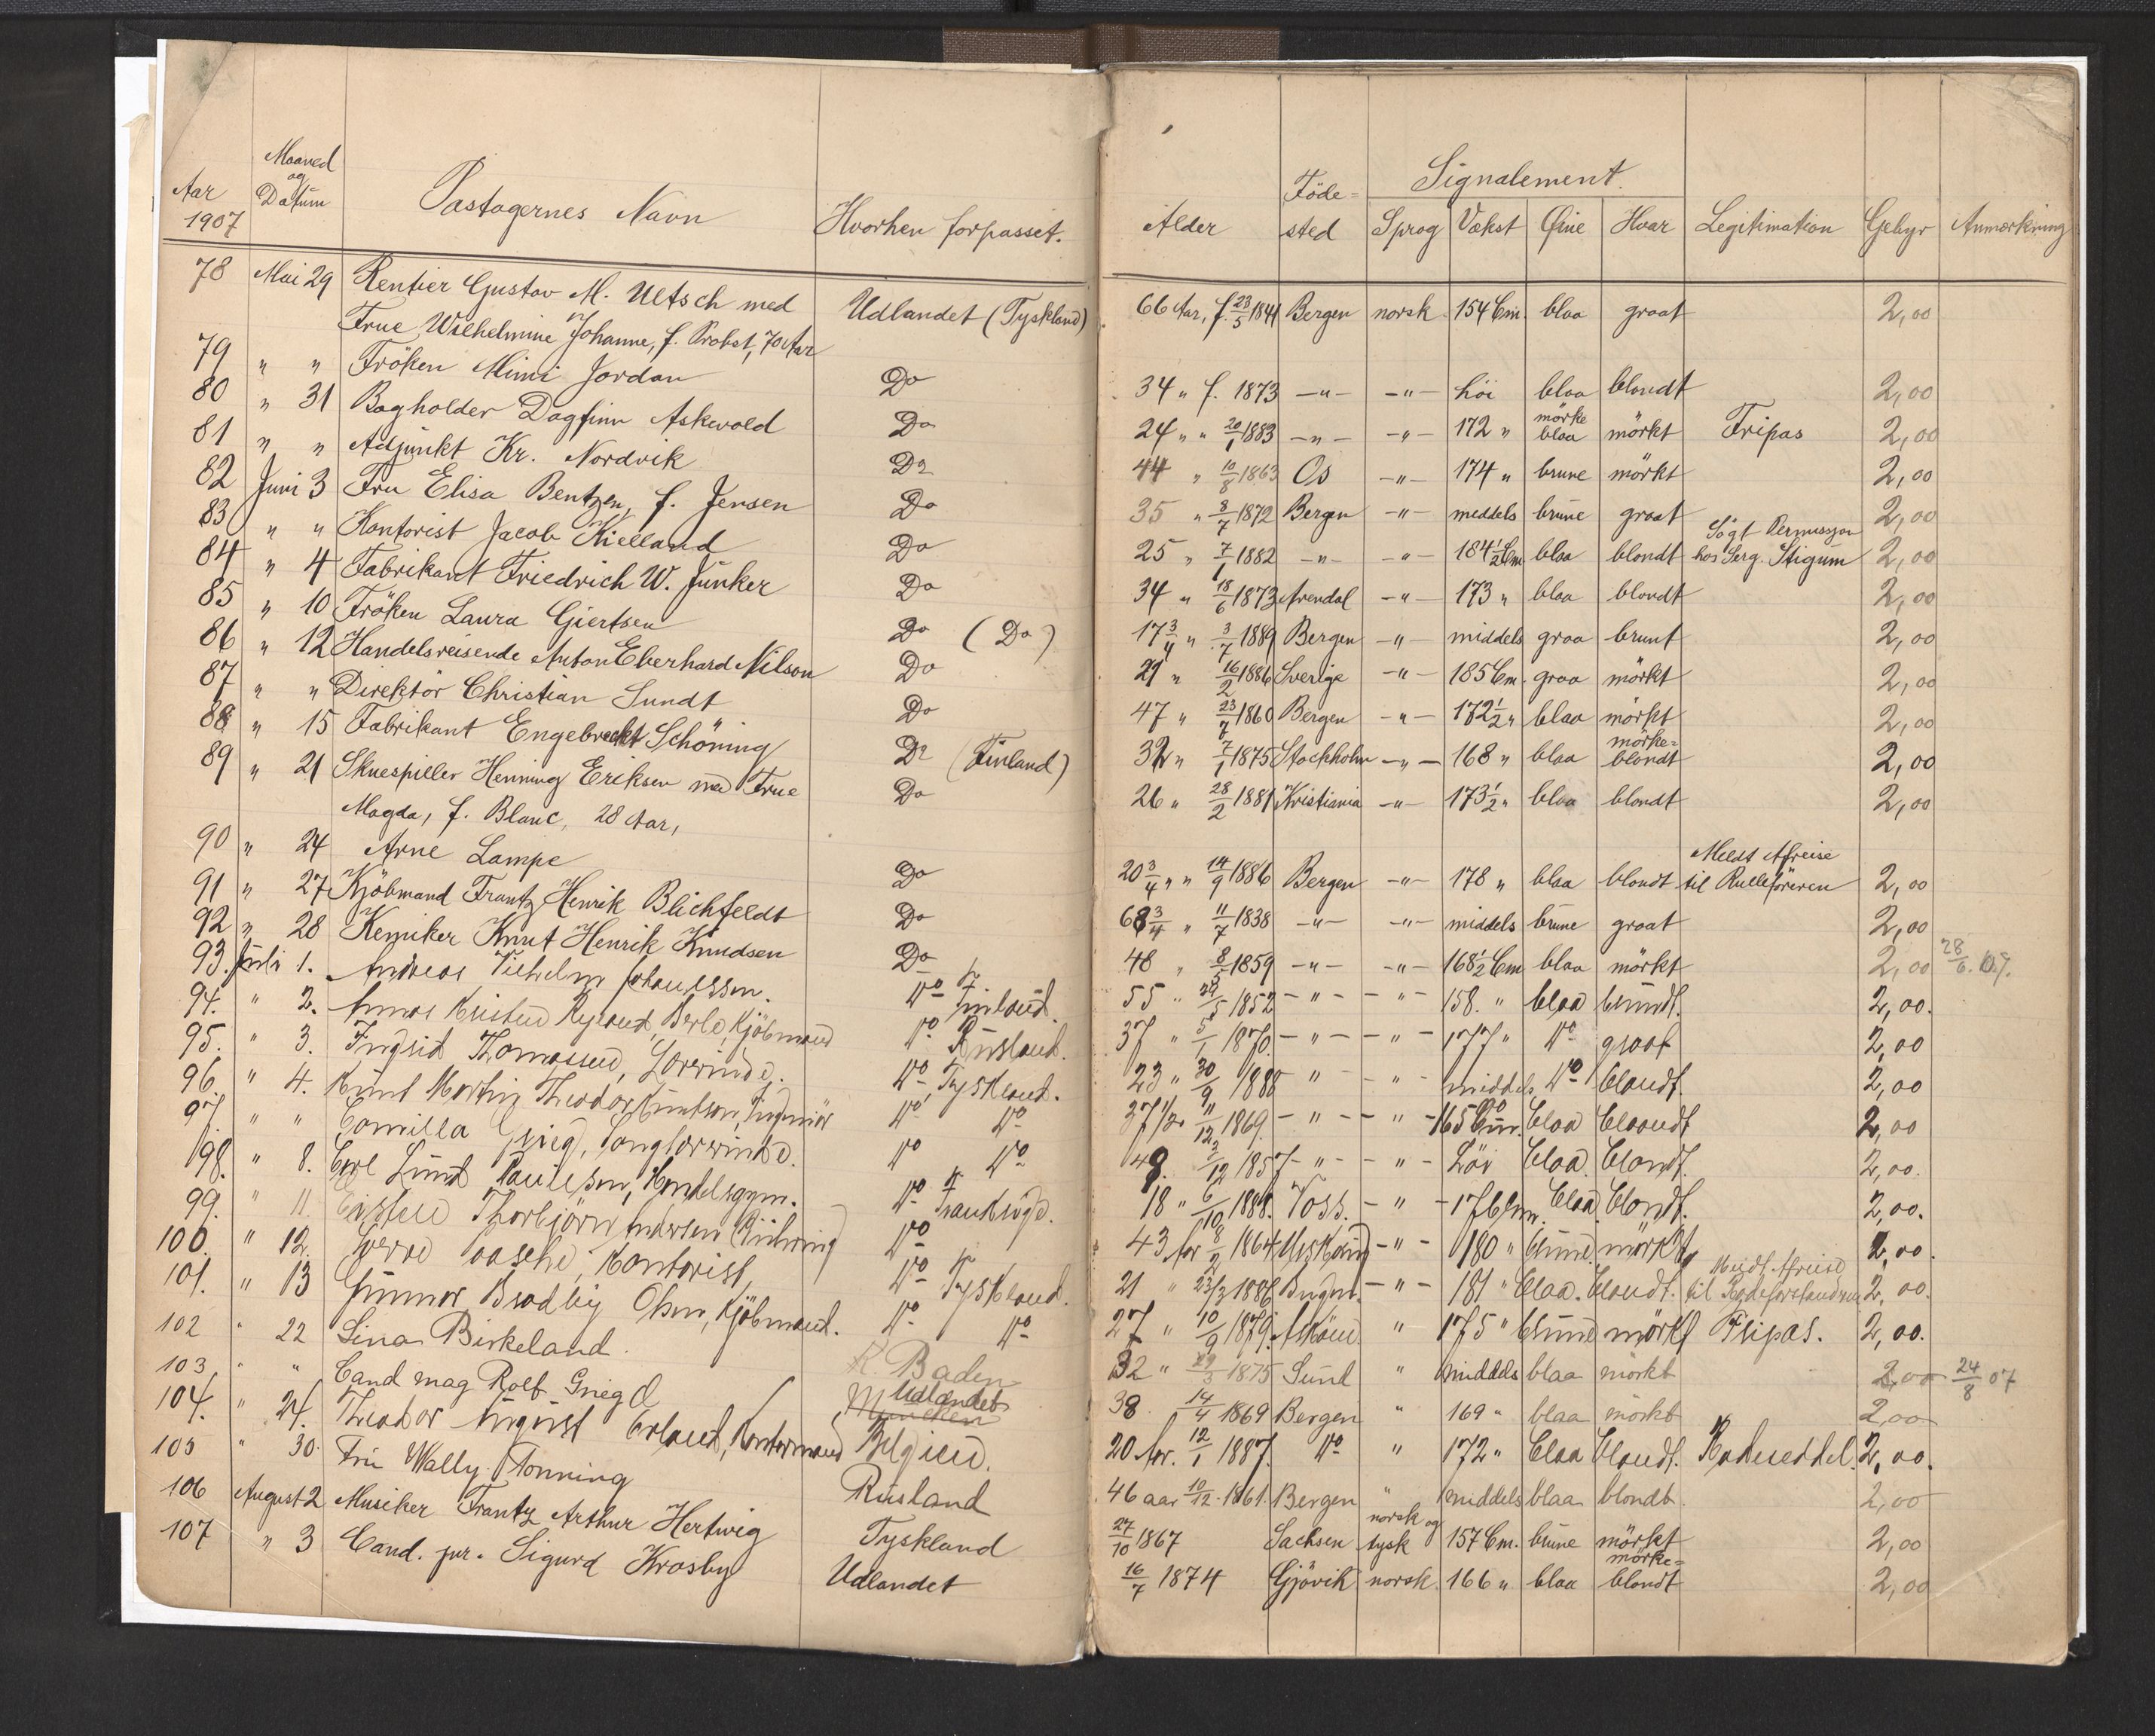 Aar 1907 Maaned og Datum Pastagernes Navn Hvorhen forpasset. Alder Föde= sted Signalement. Sprog Vækst Øine Haar Legitimation Gebyr Anmærkning
78 Mai 29 Rentier Gustav M. Ultsch med Udlandet (Tyskland) 66 Aar, f. 23/5 1841 Bergen norsk 154 Cm. blaa graat 2,00
Frue Wilhelmine Johanne, f. Probst, 70 Aar
79 " " Fröken Mimi Jordan Do 34 " f. 1873 -"- -"- höi blaa blondt 2,00
80 " 31 Bogholder Dagfinn Askevold Do 24 " " 20/1 1883 -"- -"- 172 " mörke blaa mörkt Fripas 2,00
81 " " Adjunkt Kr. Nordvik Do 44 " 10/8 1863 Os -"- 174 " brune mörkt 2,00
82 Juni 3 Fru Elisa Bentzen, f. Jensen Do 35 " 8/7 1872 Bergen -"- meddels brune graat 2,00
83 " " Kontorist Jacob Kielland Do 25 " 7/1 1882 -"- -"- 184 1/2 Cm blaa blondt Sögt Permission hos Serg. Stigum 2,00
84 " 4 Fabrikant Friedrich W. Junker Do 34 " 18/6 1873 Arendal -"- 173 " blaa blondt 2,00
85 " 10 Fröken Laura Giertsen Do (Do) 17 3/4 " 3/7 1889 Bergen -"- middels graa brunt 2,00
86 " 12 Handelsreisende Anton Eberhard Nilson Do 21 " 16/2 1886 Sverige -"- 185 Cm. graa mörkt 2,00
87 " " Direktör Christian Sundt Do 47 " 23/7 1860 Bergen -"- 172 1/2 " blaa mörkt 2,00
88 " 15 Fabrikant Engebreckt Schöning Do (Finland) 32 " 7/1 1875 Stockholm -"- 168 " blaa mörke= blondt 2,00
89 " 21 Skuespiller Henning Eriksen med Frue Do 26 " 28/2 1881 Kristiania -"- 173 1/2 " blaa blondt 2,00
Magda, f. Blanc, 28 Aar,
90 " 24 Arne Lampe Do 20 3/4 " " 14/9 1886 Bergen -"- 178 " blaa blondt Meldt Afreise til Rulleföreren 2,00
91 " 27 Kjöbmand Frantz Henrik Blichfeldt Do 68 3/4 " 11/7 1838 -"- -"- middels brune graat 2,00
92 " 28 Kemiker Knut Henrik Knudsen Do 48 " 8/5 1859 -"- -"- 168 1/2 Cm blaa mörkt 2,00 28/6. 07.
93. Juli 1. Andreas Vilhelm Johanessen. Do Finland. 55 " 1852 -"- -"- 158. " blaa brundt. 2,00.
94. " 2. Kjöbmand Do Rusland. 37 " 5/1 1870. -"- -"- 177 " Do graat 2,00
95. " 3. Ingrid Thomassen, Do Tyskland. 23 " 30/9 1888 " -"- middels Do blondt. 2,00
96. " 4. Knut Martin Theodor Knutsen, Ingeniör Do Do 37 1/2 11/12 1869. -"- -"- 165 Cm. blaa blondt 2,00
97 " " Camilla Grieg, Do Do 48 2/12 1857 -"- -"- höi blaa blondt. 2,00.
98. " 8. Carl Lund Paulsen, Handelsgym. Do Frankrige. 18 " 6/10 1888. Voss. -"- 176 Cm. blaa blondt. 2,00.
99. " 11. Thorbjörn Do 43 Aar 8/2 1864 -"- 180 " brune mörkt 2,00.
100. " 12. Sverre Kontorist, Do Tyskland. 21 " 23/3 1886 Bergen. -"- 181 " blaa. blondt. Meldt Afreise til 2,00.
101. " 13 Gunnar Brodby Olsen, Kjöbmand. Do Do 27 " 10/9 1879. Asköen " 175 " brune mörkt Fripas. 2,00.
102 " 22 Lina Birkeland. Baden 32 " 29/3 1875 Sund " middels blaa mörkt 2,00 24/8 07
103 " " Cand mag Rolf Grieg Udlandet 38 14/4 1869 Bergen " 169 " blaa mörkt 2,00
104. " 24. Theodor August Erland, Kontormand Belgien. 20 Aar. 12/1 1887. Do " 172 " blaa blondt. Rodeseddel. 2,00.
105 " 30. Fru Wally Tonning Rusland 46 aar 10/12 1861. Bergen " middels blaa blondt. 2,00
106 August 2 Musiker Frantz Arthur Hertwig Tyskland 27/10 1867 Sachsen norsk og tysk 157 Cm. brune mörkt 2,00
107 " 3 Cand. jur. Sigurd Krosby Udlandet 16/7 1874 Gjövik norsk 166 " blaa mörke= blondt 2,00